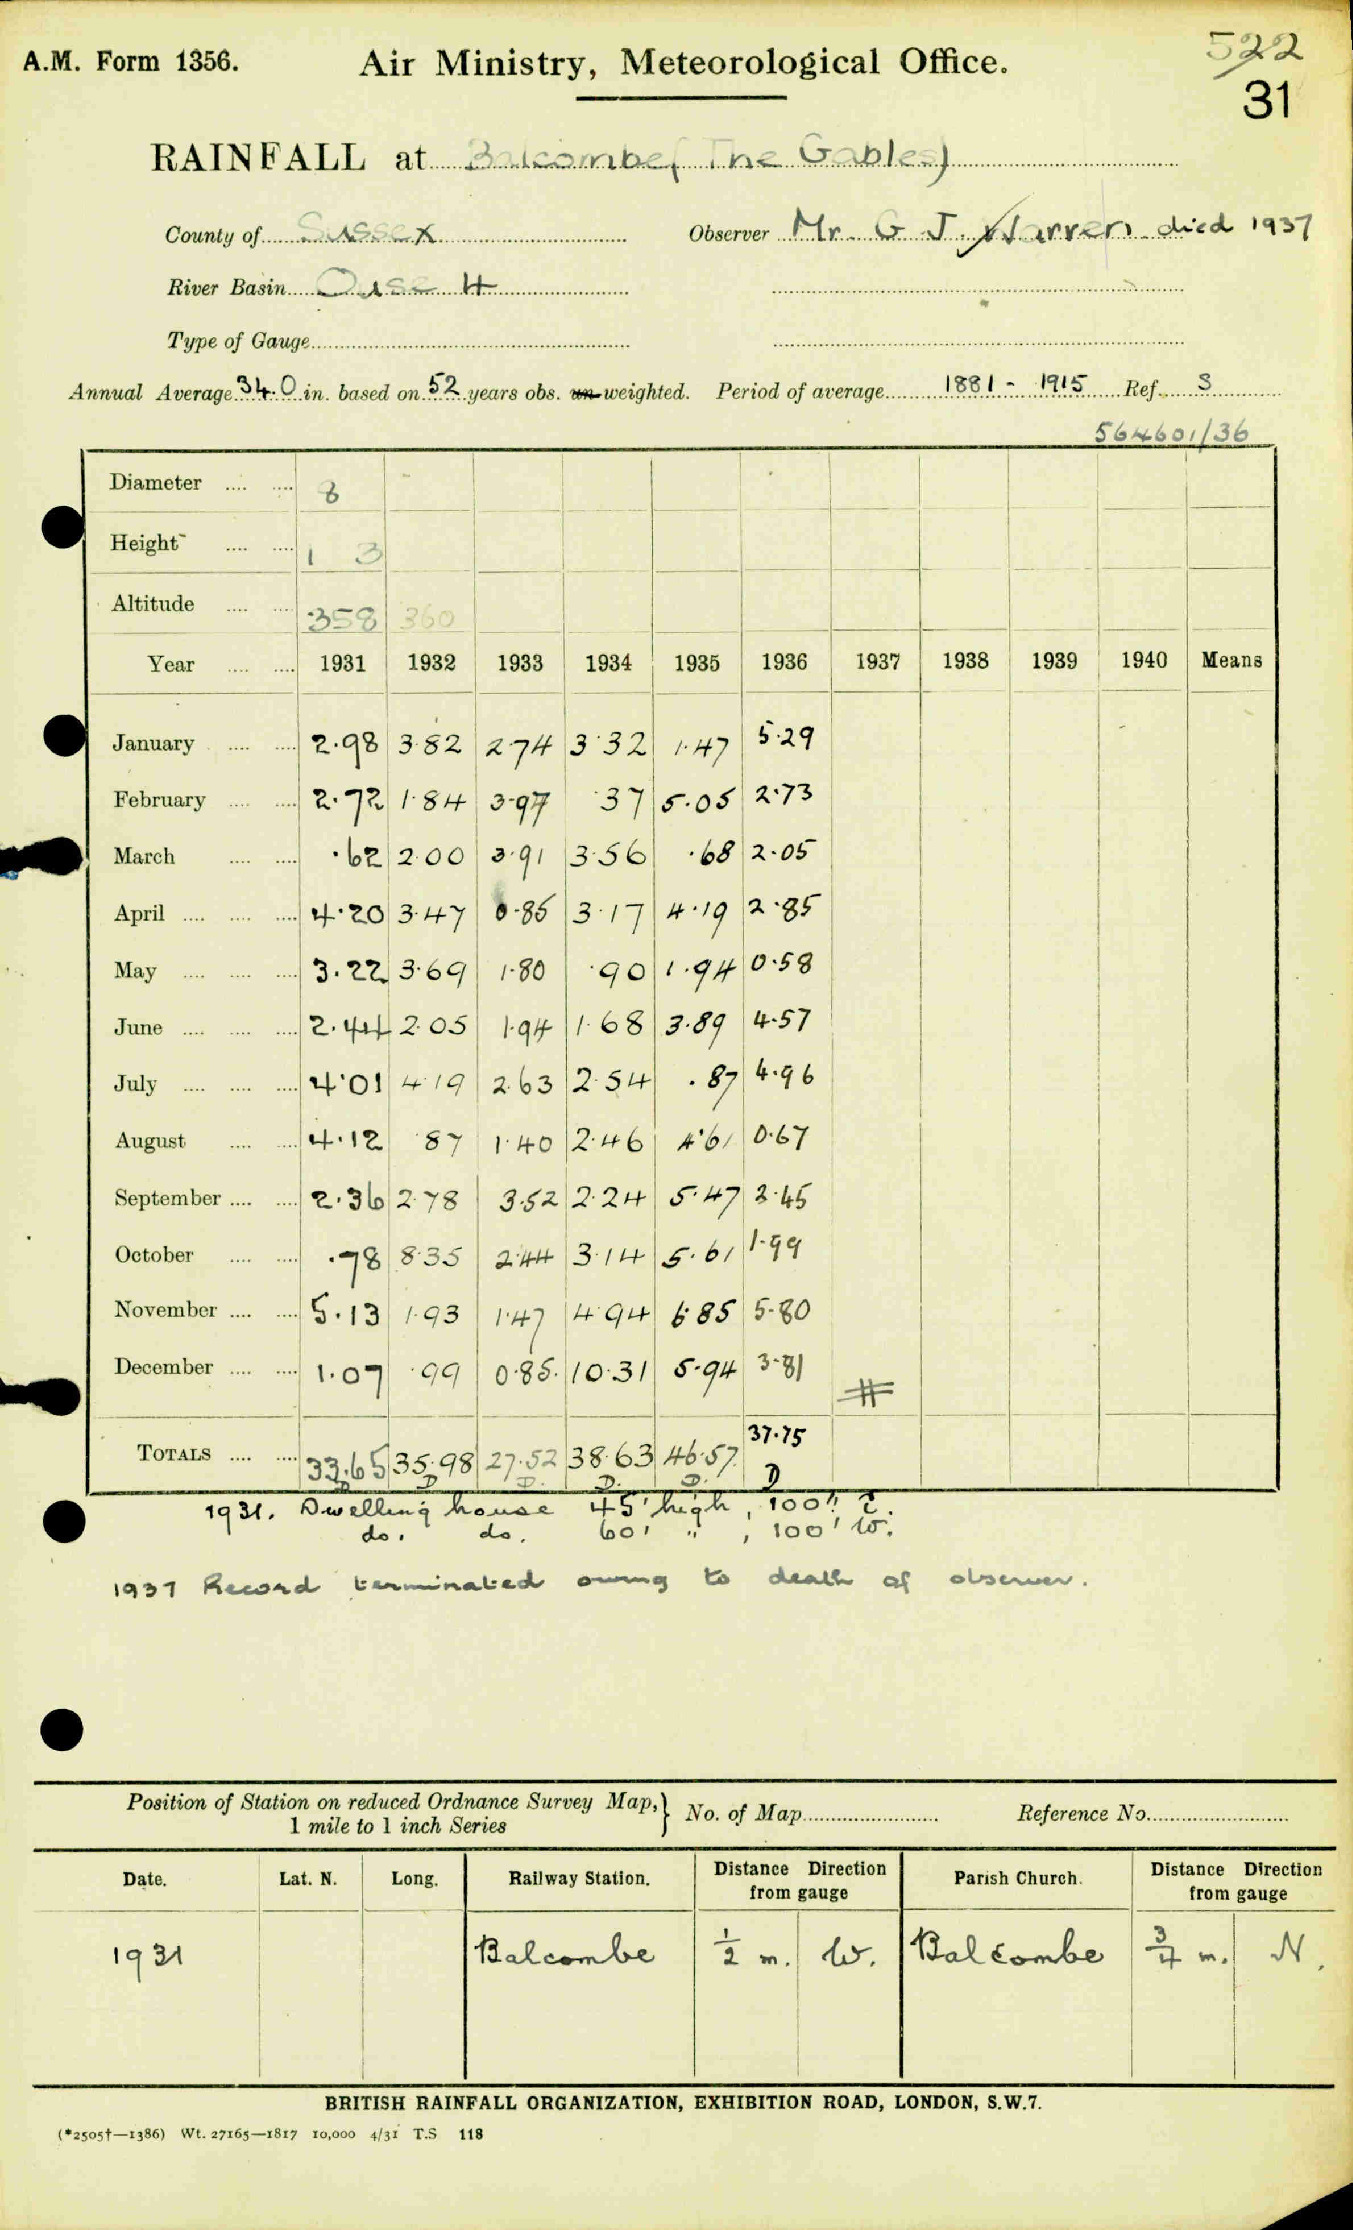 A.M. Form 1356.
Air Ministry, Meteorological Office.
522
31
RAINFALL at Balcombe (The Gables)
County of Sussex
Observer Mr. G J. Warren died 1937
River Basin Ouse 4
Type of Gauge
Annual Average 34.0 in. based on 52 years obs. un-weighted. Period of average 1881 - 1915 Ref. S
564601/36
Diameter .... .... 8
Height .... .... 1 3
Altitude .... .... 358 360
Year .... .... 1931 1932 1933 1934 1935 1936 1937 1938 1939 1940 Means
January .... .... 2.98 3.82 2.74 3.32 1.47 5.29
February .... .... 2.72 1.84 3.97 .37 5.05 2.73
March .... .... .62 2.00 3.91 3.56 .68 2.05
April .... .... .... 4.20 3.47 0.85 3.17 4.19 2.85
May .... .... .... 3.22 3.69 1.80 .90 1.94 0.58
June .... .... .... 2.44 2.05 1.94 1.68 3.89 4.57
July .... .... .... 4.01 4.19 2.63 2.54 .87 4.96
August .... .... 4.12 .87 1.40 2.46 4.61 0.67
September .... .... 2.36 2.78 3.52 2.24 5.47 2.45
October .... .... .78 8.35 2.44 3.14 5.61 1.99
November .... .... 5.13 1.93 1.47 4.94 6.85 5.80
December .... .... 1.07 .99 0.85. 10.31 5.94 3.81
TOTALS .... .... 33.65 35.98 27.52 38.63 46.57 37.75
D D D. D. D. D
1931. Dwelling house 45' high, 100'
do. do. 60' " , 100' W.
1937 Record terminated owing to death of observer.
Position of Station on reduced Ordnance Survey Map, 1 mile to 1 inch Series } No. of Map Reference No.
Date. Lat. N. Long. Railway Station. Distance Direction from gauge Parish Church. Distance Direction from gauge
1931 Balcombe ½ m. W. Balcombe ¾ m. N.
BRITISH RAINFALL ORGANIZATION, EXHIBITION ROAD, LONDON, S.W.7.
(*2505†—1386) Wt. 27165—1817 10,000 4/31 T.S 118